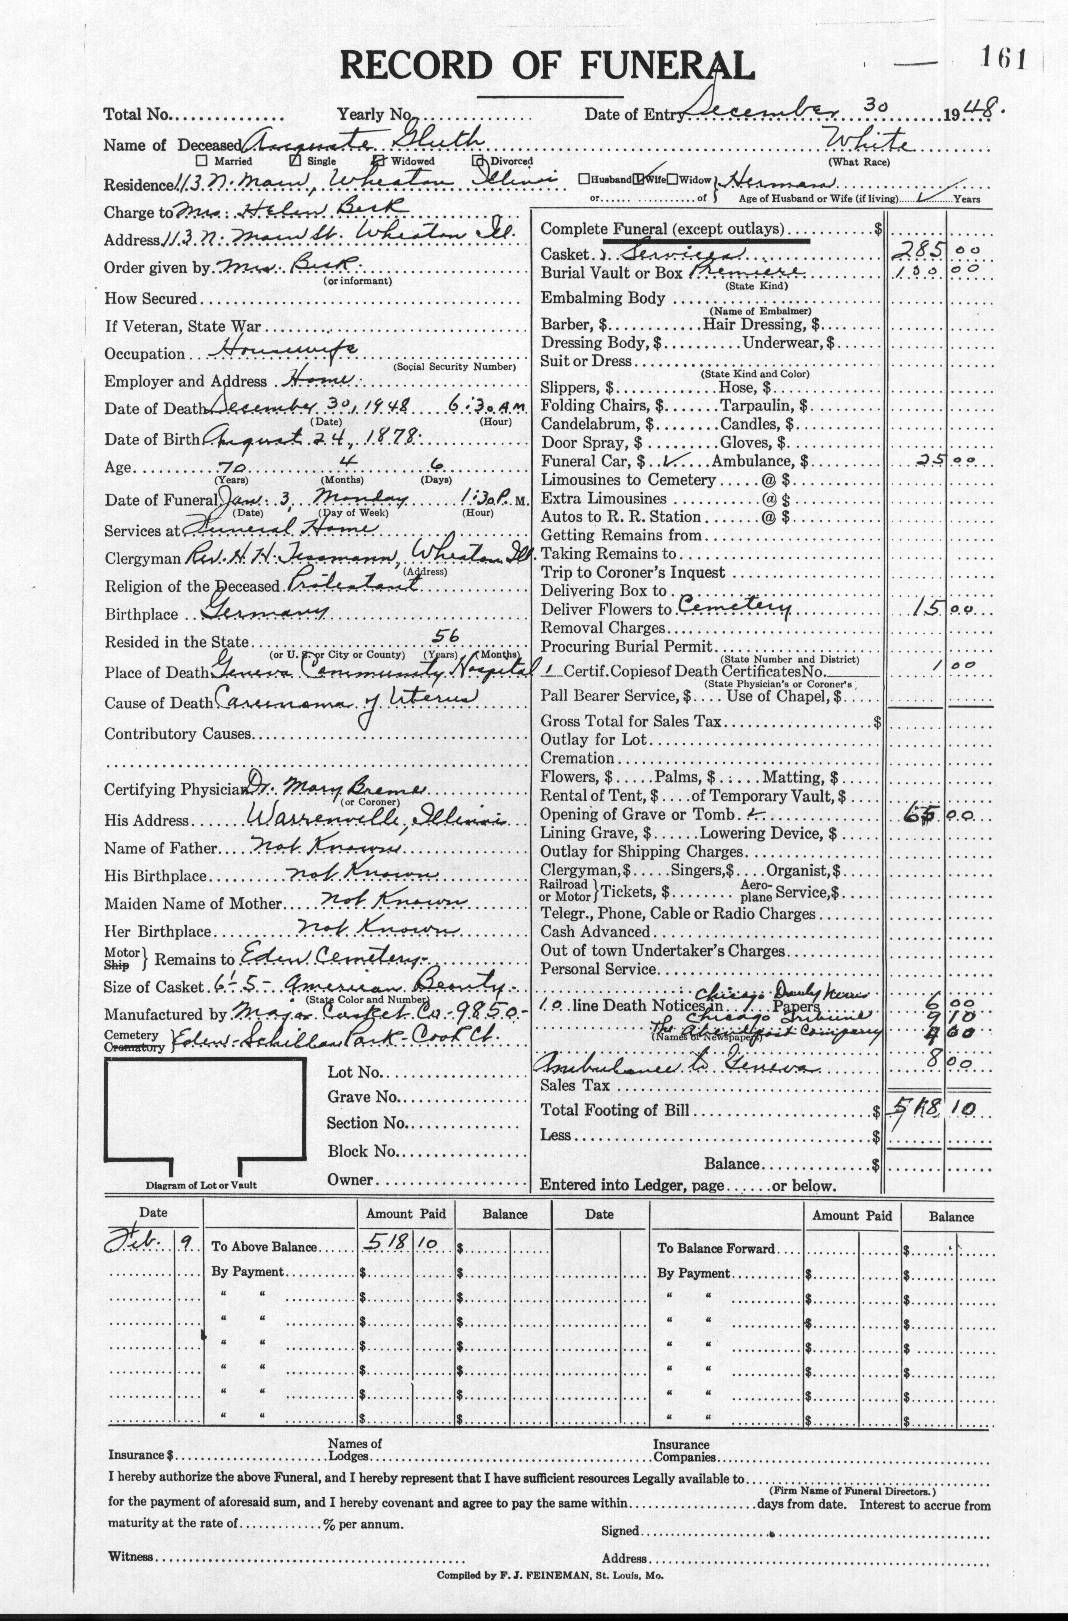 RECORD OF FUNERAL
161
Total No. Yearly No. Date of Entry December 30 1948.
Name of Deceased Auguste Gluth White
Married Single Widowed Divorced (What Race)
Residence 113 N. Main, Wheaton Illinois Husband Wife Widow } Herman
or of Age of Husband or Wife (if living) Years
Charge to Mrs. Helen Beck
Address 113 N. Main St. Wheaton Ill.
Order given by Mrs. Beck
(or informant)
How Secured
If Veteran, State War
Occupation Housewife
(Social Security Number)
Employer and Address Home
Date of Death December 30, 1948 6:30 A.M.
(Date) (Hour)
Date of Birth August 24, 1878.
Age 70 4 6
(Years) (Months) (Days)
Date of Funeral Jan. 3, Monday 1:30 P.M.
(Date) (Day of Week) (Hour)
Services at Funeral Home
Clergyman Rev. H. H. Tessmann, Wheaton Ill.
(Address)
Religion of the Deceased Protestant
Birthplace Germany
Resided in the State 56
(or U. S. or City or County) (Years) (Months)
Place of Death Geneva Community Hospital
Cause of Death Carcinoma of Uterus
Contributory Causes
Certifying Physician Dr. Mary Breme
(or Coroner)
His Address Warrenville, Illinois
Name of Father not Known
His Birthplace not Known
Maiden Name of Mother not Known
Her Birthplace not Known
Motor Ship } Remains to Eden Cemetery-
Size of Casket 6/5 - American Beauty -
(State Color and Number)
Manufactured by Major Casket Co - 9850 -
Cemetery Crematory } Eden - Schiller Park - Cook Ct.
Lot No.
Grave No.
Section No.
Block No.
Diagram of Lot or Vault
Owner
Complete Funeral (except outlays) $
Casket Services 285 00
Burial Vault or Box Premiere 100 00
(State Kind)
Embalming Body
(Name of Embalmer)
Barber, $ Hair Dressing, $
Dressing Body, $ Underwear, $
Suit or Dress
(State Kind and Color)
Slippers, $ Hose, $
Folding Chairs, $ Tarpaulin, $
Candelabrum, $ Candles, $
Door Spray, $ Gloves, $
Funeral Car, $ ✓ Ambulance, $ 25 00
Limousines to Cemetery @ $
Extra Limousines @ $
Autos to R. R. Station @ $
Getting Remains from
Taking Remains to
Trip to Coroner's Inquest
Delivering Box to
Deliver Flowers to Cemetery 15 00
Removal Charges
Procuring Burial Permit
(State Number and District)
1 Certif. Copies of Death Certificates No. 1 00
(State Physician's or Coroner's
Pall Bearer Service, $ Use of Chapel, $
Gross Total for Sales Tax $
Outlay for Lot
Cremation
Flowers, $ Palms, $ Matting, $
Rental of Tent, $ of Temporary Vault, $
Opening of Grave or Tomb ✓ 65 00
Lining Grave, $ Lowering Device, $
Outlay for Shipping Charges
Clergyman, $ Singers, $ Organist, $
Railroad or Motor } Tickets, $ Aeroplane Service, $
Telegr., Phone, Cable or Radio Charges
Cash Advanced
Out of town Undertaker's Charges
Personal Service
Chicago Daily News 6 00
10 line Death Notices in Papers
Chicago Tribune 9 10
The Abendpost Company 4 00
(Names of Newspapers)
Ambulance to Geneva 8 00
Sales Tax
Total Footing of Bill $ 518 10
Less $
Balance $
Entered into Ledger, page or below.
Date Amount Paid Balance Date Amount Paid Balance
Feb. 9 To Above Balance 518 10 $ To Balance Forward $
By Payment $ $ By Payment $ $
" " $ $ " " $ $
" " $ $ " " $ $
" " $ $ " " $ $
" " $ $ " " $ $
" " $ $ " " $ $
" " $ $ " " $ $
Insurance $ Names of Lodges Insurance Companies
I hereby authorize the above Funeral, and I hereby represent that I have sufficient resources Legally available to
(Firm Name of Funeral Directors.)
for the payment of aforesaid sum, and I hereby covenant and agree to pay the same within days from date. Interest to accrue from
maturity at the rate of % per annum.
Signed
Witness Address
Compiled by F. J. FEINEMAN, St. Louis, Mo.